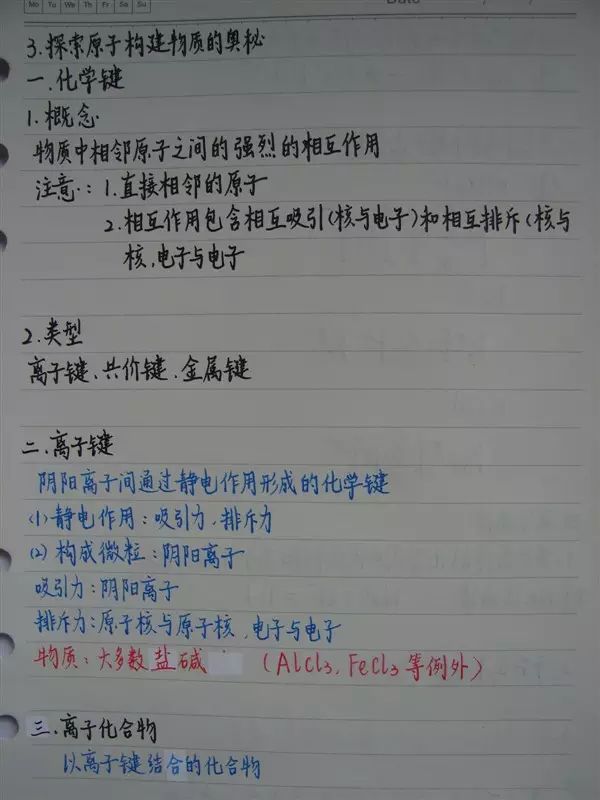 Mo Tu We Th Fr Sa Su
Date
3.探索原子构建物质的奥秘
一.化学键
1.概念
物质中相邻原子之间的强烈的相互作用
注意:1.直接相邻的原子
2.相互作用包含相互吸引(核与电子)和相互排斥(核与
核,电子与电子
2.类型
离子键、共价键、金属键
二.离子键
阴阳离子间通过静电作用形成的化学键
(1)静电作用:吸引力、排斥力
(2)构成微粒:阴阳离子
吸引力:阴阳离子
排斥力:原子核与原子核,电子与电子
物质:大多数盐碱 (AlCl3,FeCl3等例外)
三.离子化合物
以离子键结合的化合物